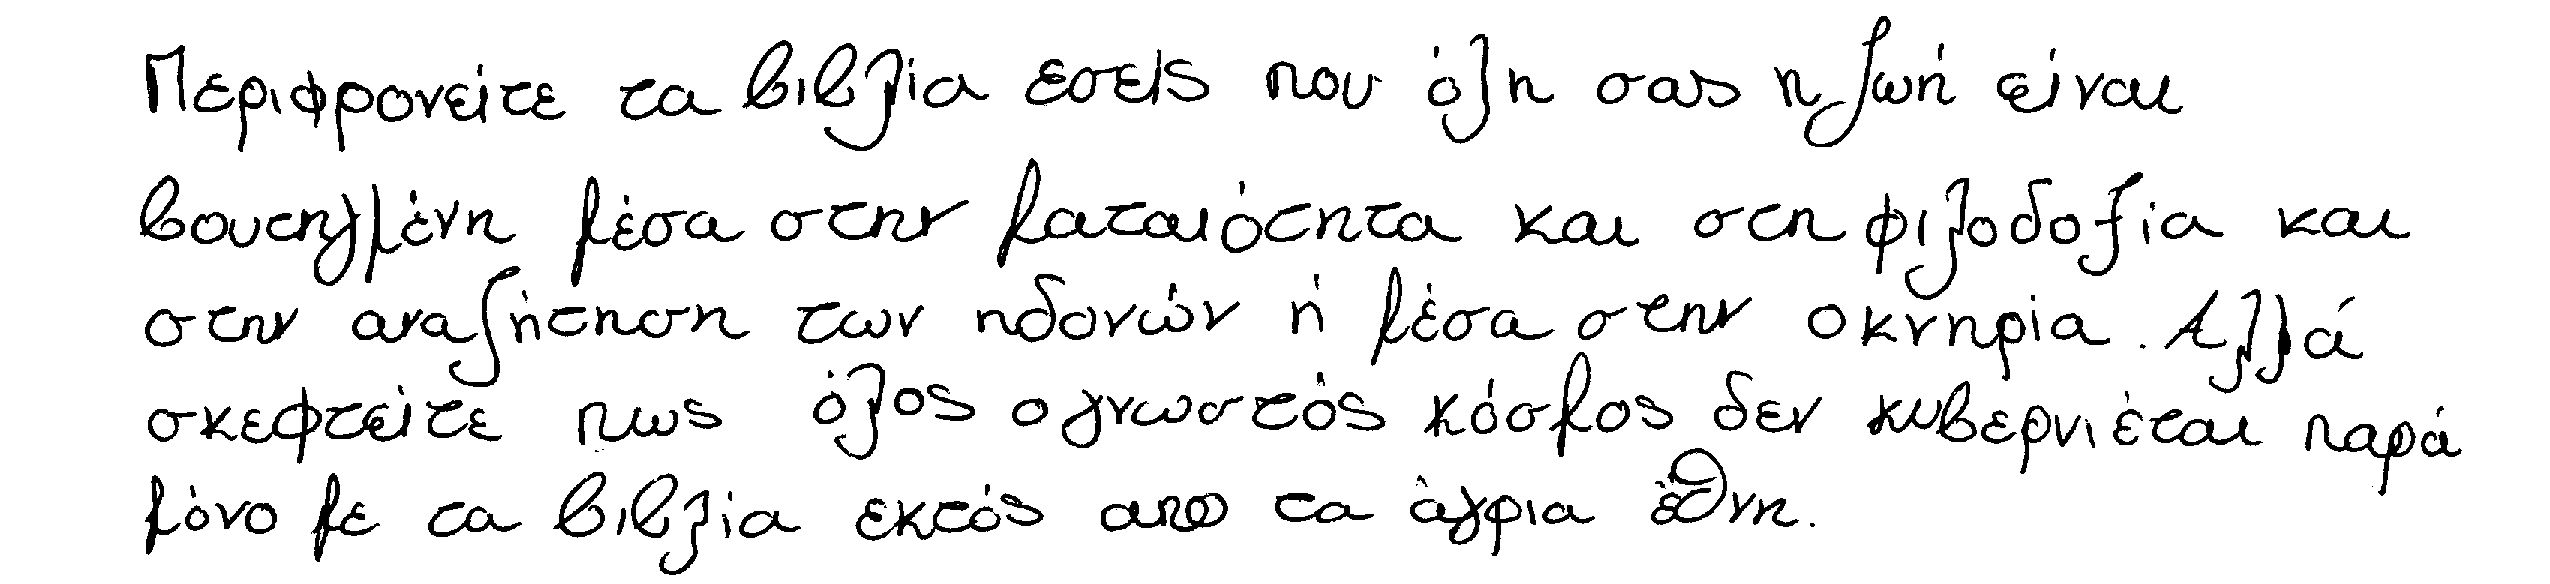 Περιφρονείτε τα βιβλία εσείς που όλη σας η ζωή είναι
βουτηγμένη μέσα στην ματαιότητα και στη φιλοδοξία και
στην αναζήτηση των ηδονών ή μέσα στην οκνηρία. Αλλά
σκεφτείτε πως όλος ο γνωστός κόσμος δεν κυβερνιέται παρά
μόνο με τα βιβλία εκτός απο τα άγρια έθνη.